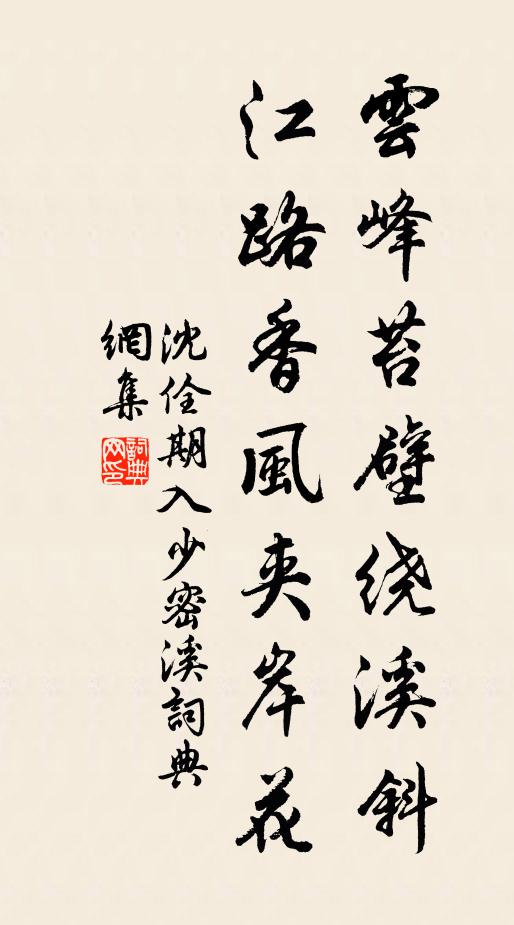 雲峰苔壁绕溪斜
江路香風夹岸花
沈佺期入少密溪詞典
網集
詞典
网印